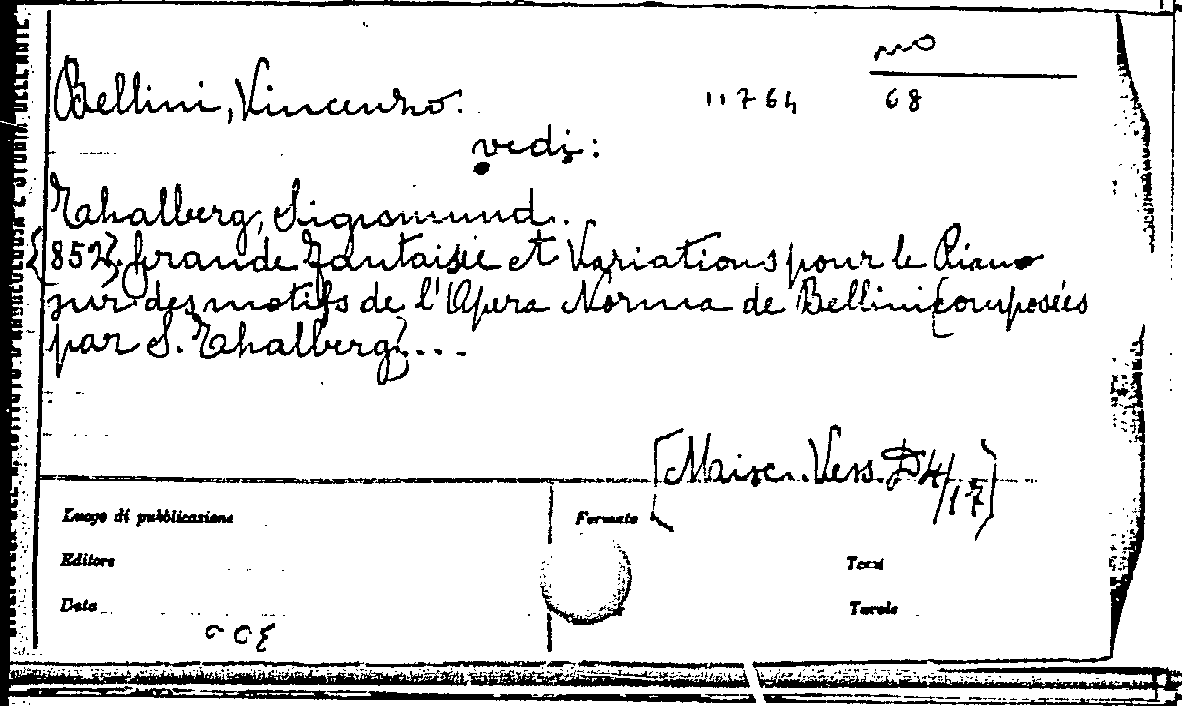 mo
Bellini, Vincenzo. 11764 68
vedi:
Thalberg, Sigismund.
{852}. Grande Fantaisie et Variations pour le Piano
sur des motifs de l'Opera Norma de Bellini [composées
par S. Thalberg]....
[Misc. Vess. D4/17]
Luogo di pubblicazione Formato
Editore Tomi
Data Tavole